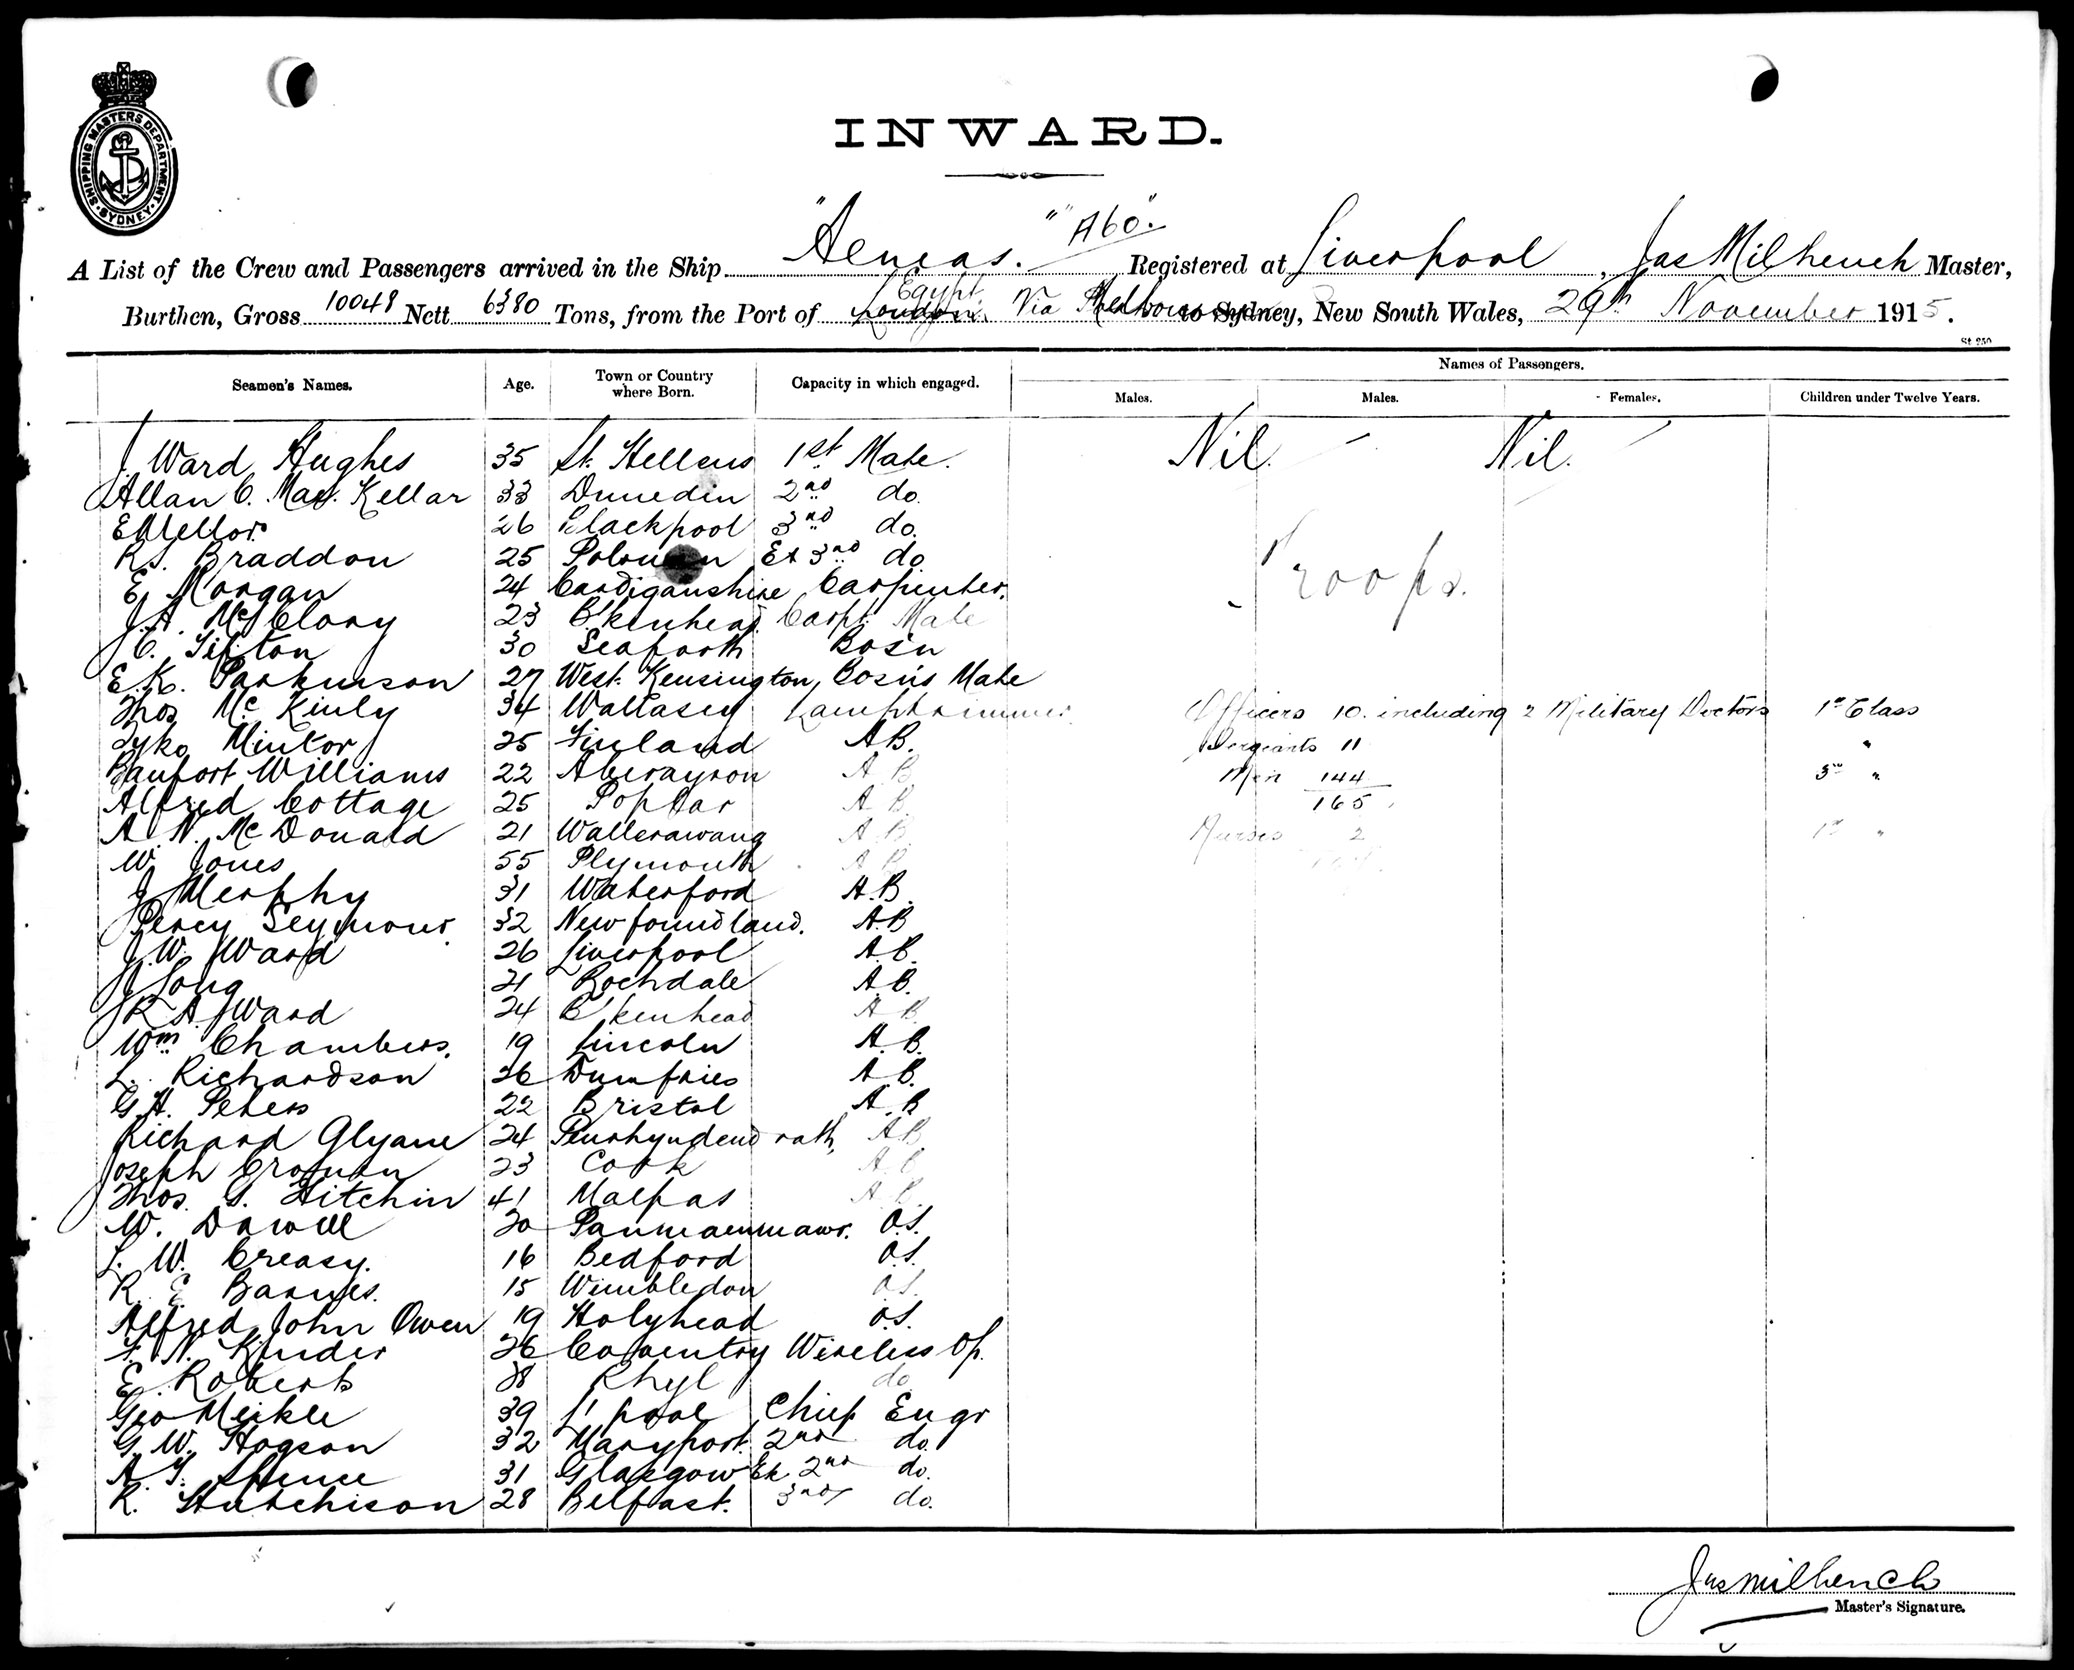 SHIPPING MASTERS DEPARTMENT
SYDNEY
INWARD.
A List of the Crew and Passengers arrived in the Ship "Aeneas." "A60". Registered at Liverpool, Jas Milhench Master,
Burthen, Gross 10048 Nett 6380 Tons, from the Port of London Egypt Via Melbourne to Sydney, New South Wales, 29th November 1915.
St 250
Seamen's Names. Age. Town or Country where Born. Capacity in which engaged. Names of Passengers.
Males. Males. Females. Children under Twelve Years.
J. Ward Hughes 35 St. Hellens 1st Mate. Nil. Nil.
Allan C. Mac. Kellar 33 Dunedin 2nd do.
E Mellor 26 Blackpool 3rd do.
R.S. Braddon 25 Ex 3rd do
E. Morgan 24 Cardiganshire Carpenter. Troops.
J.A. McClory 23 B'kenhead Carpt. Mate
J.C. Tifton 30 Seaforth Bos'n
E.K. Parkinson 27 West Kensington, Bosn's Mate
Thos Mc Kinly 34 Wallasey Lamptrimmer. Officers 10. including 2 Military Doctors 1st Class
Tyko Mintor 25 Finland AB. Sergeants 11 "
Baufort Williams 22 Aberayron A B Men 144 3rd "
Alfred Cottage 25 Poplar A B. 165
A. N. McDonald 21 Wallerawang A B Nurses 2 1st "
W. Jones 55 Plymouth A B
J Murphy 31 Waterford A.B.
Percy Seymour 32 Newfoundland. A.B
J.W. Ward 26 Liverpool A.B.
J Long 21 Rochdale A.B.
R A Ward 24 B'kenhead A B.
Wm Chambers. 19 Lincoln A.B.
L. Richardson 26 Dumfries A B.
G.H. Peters 22 Bristol A.B
Richard Glyane 24 Penrhyndeudrath, AB
Joseph 23 Cork A B
Thos. S. Hitchin 41 Malpas A B.
W. Dowell 20 O.S.
L. W. Creasy. 16 Bedford O.S.
R. E. Barnes. 15 Wimbledon O.S.
Alfred John Owen 19 Holyhead O.S.
F. N. Kinder 26 Coventry Wireless Op.
E. Roberts Rhyl do
Geo Meikle 39 L'pool Chief Engr
G. W. Hogson 32 Maryport. 2nd do.
A. T. Spence 31 Glasgow Ex 2nd do.
R. Hutchison 28 Belfast. 3rd do.
Jas Milhench
Master's Signature.